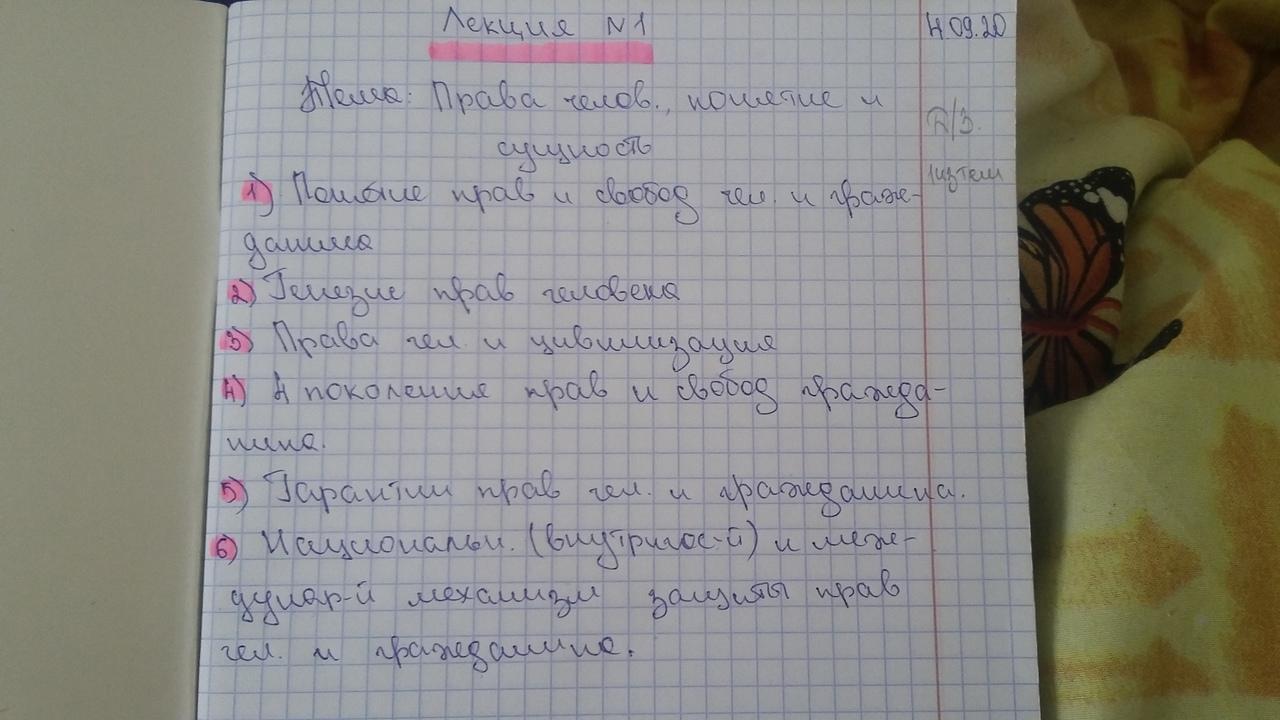 Лекция №1
4.09.20
Тема: Права челов., понятие и
сущность
Д/З.
1) Понятие прав и свобод чел. и граж-
данина
2) Генезис прав человека
3) Права чел. и цивилизация
4) 4 поколения прав и свобод гражда-
нина.
5) Гарантии прав чел. и гражданина.
6) Национальн. (внутригос-й) и меж-
дунар-й механизм защиты прав
чел. и гражданина.